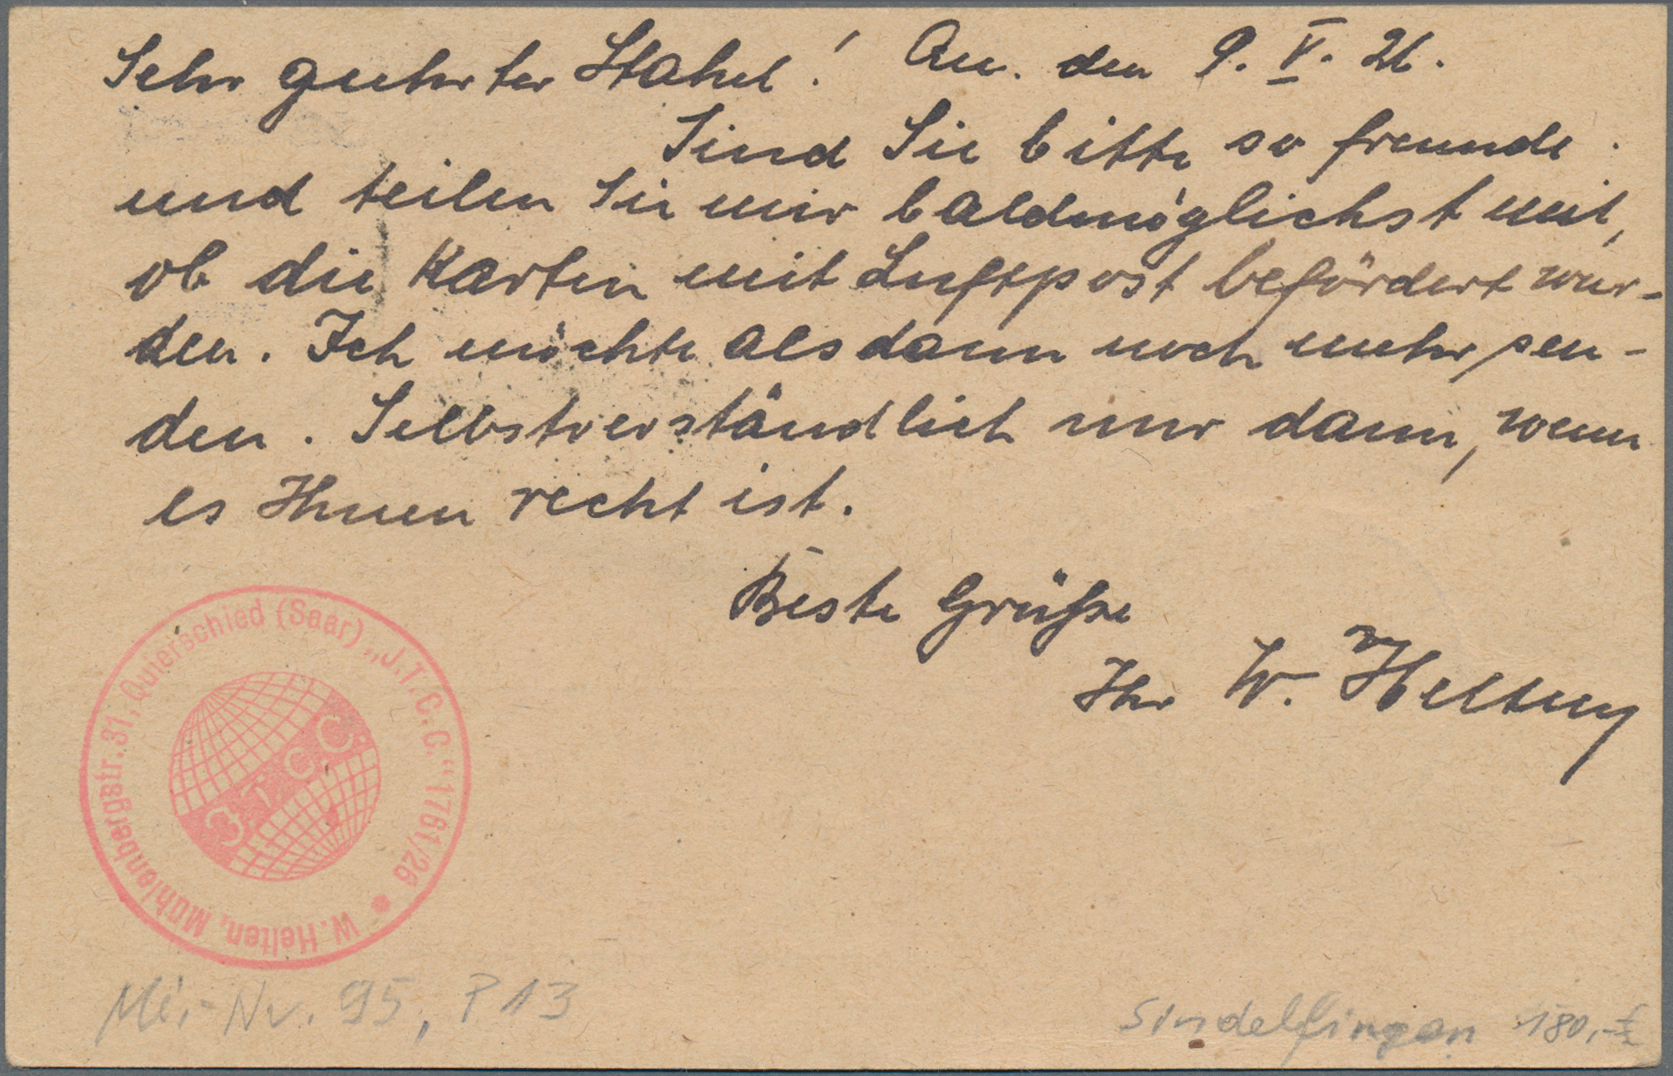 Sehr geehrter Stahel! Qu. den 9. V. 26.
Sind Sie bitte so freundl.
und teilen Sie mir baldmöglichst mit,
ob die Karten mit Luftpost befördert wur-
den. Ich möchte alsdann noch mehr sen-
den. Selbstverständlich nur dann, wenn
es Ihnen recht ist.
Beste Grüße
Ihr W. Helten
W. Helten, Mühlenbergstr. 31, Quierschied (Saar) „J.T.C.C.“ 1761/26
J.T.C.C.
Mi.-Nr. 95, P 13
Sindelfingen 180,-